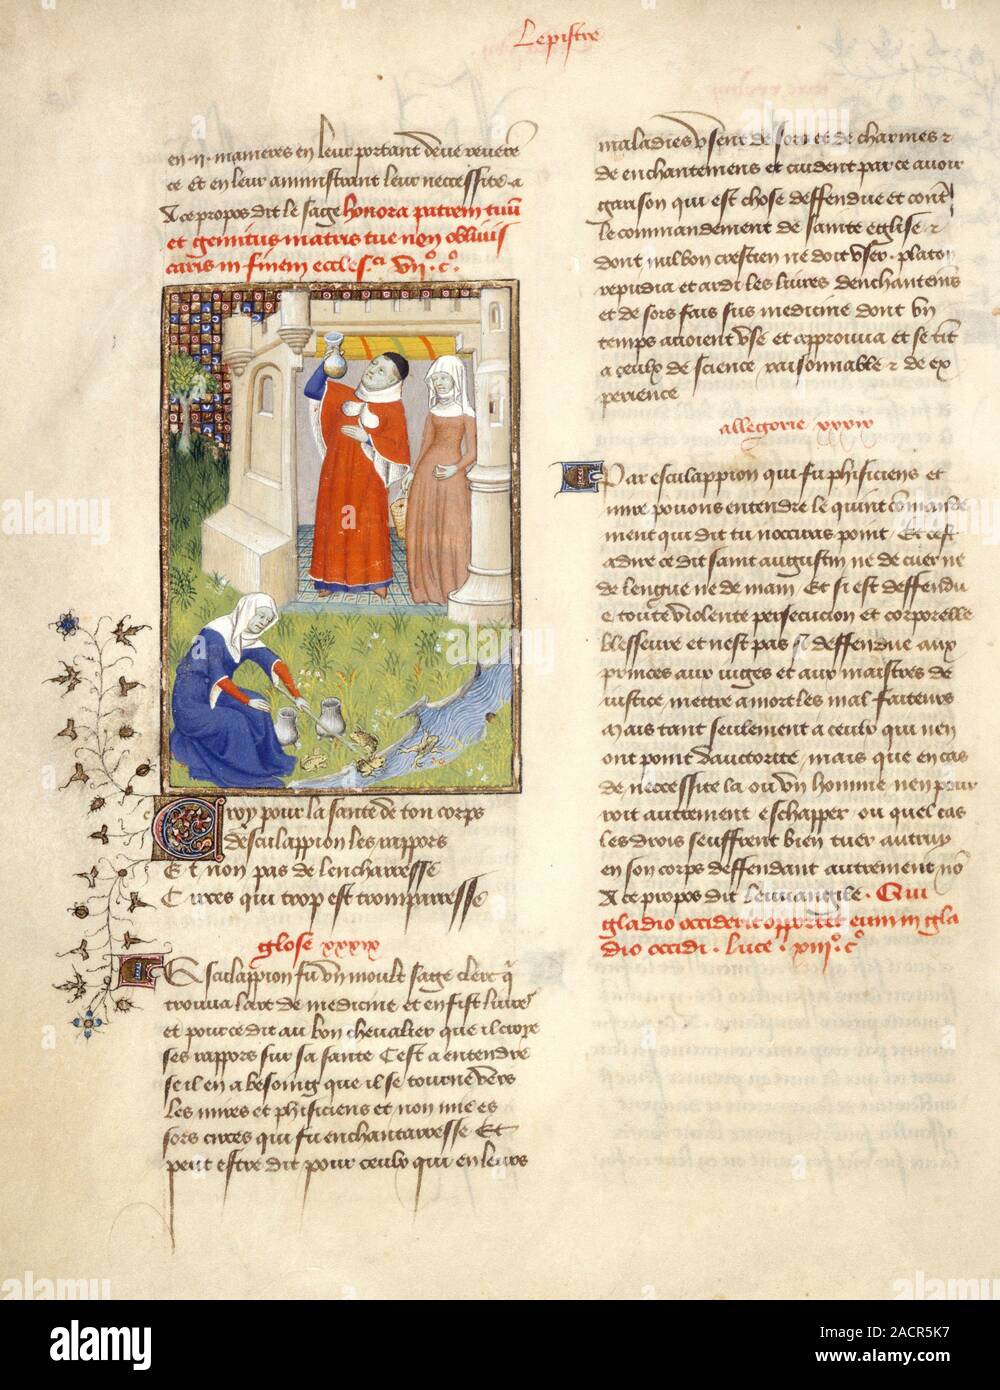 Lepistre
en .ii. manieres en leur portant deue reveren
ce et en leur aministrant leur necessite a
ce propos dit le sage honora patrem tuu
et gemitus matris tue non oblivis
caris in finem eccles. vii. c.
Croy pour la sante de ton corps
desculappion les rappors
Et non pas de lencharresse
Circes qui trop est tromparresse
glose xxxix
Esculappion fu un moult sage clerc q
trouva lart de medicine et en fist livres
et pour ce dit au bon chevalier que il croye
ses rappors sur sa sante Cest a entendre
se il en a besoing que il se tourne vers
les mires et phisiciens et non mie es
sors circes qui fu enchantarresse Et
peut estre dit pour ceulx qui en leurs
maladies usent de sors et de charmes &
de enchantemens et cuident par ce avoir
garison qui est chose deffendue et cont
le commandement de sainte eglise &
dont nul bon crestien ne doit user. platon
repudia et ardi les livres denchantemens
et de sors fais sus medicine dont un
temps avoient use et approuva et se tit
a ceulx de science raisonnable & de ex
perience
allegorie xxxix
Par esculappion qui fu phisiciens et
mire povons entendre le quint comande
ment qui dit tu noccuras point. Et cest
a dire ce dit saint augustin ne de cuer ne
de lengue ne de main Et si est deffendu
e toute violente persecucion et corporelle
blesseure et nest pas deffendue aux
princes aux juges et aux maistres de
justice mettre a mort les malfaiteurs
Mais tant seulement a ceulx qui nen
ont point dauctorite mais que en cas
de necessite la ou un homme nen pour
roit autrement eschapper ou quel cas
les drois seuffrent bien tuer autruy
en son corps deffendant autrement no
A ce propos dit leuuangile. Qui
gladio occiderit opportet eum in gla
dio occidi. luce. xiii. c.
alamy
Image ID: 2ACR5K7
www.alamy.com